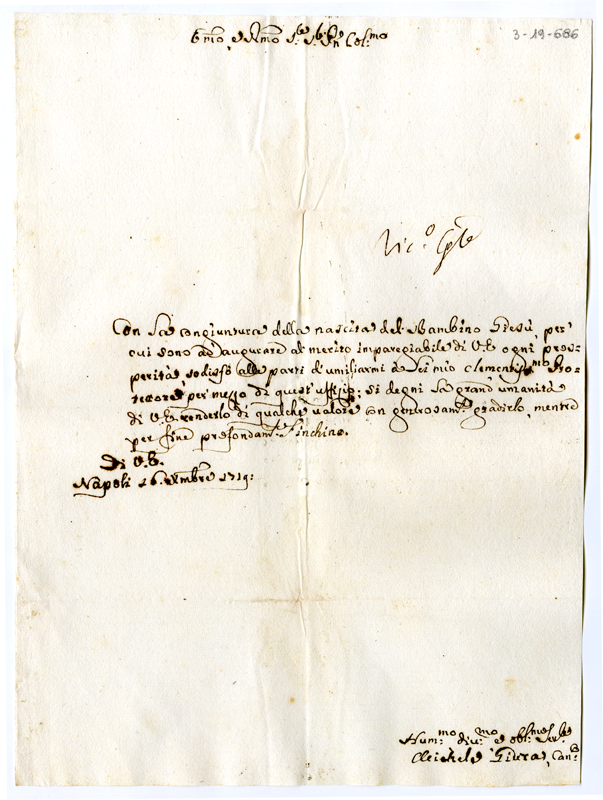 3-19-686
Emo, e Rmo Sre. Sre. Pn Col:mo
Ric.o
Con la congiuntura della nascita del Bambino Giesù, per
cui sono ad augurare al merito impareggiabile di V.E. ogni pros-
perità, sodisfo alle parti d'umiliarmi a Lei mio clementissmo Pro-
tettore per mezzo di quest'uffizio; si degni la grand'umanità
di V.E. renderlo di qualche valore con generosamte. gradirlo, mentre
per fine profondamte. l'inchino.
Di V.E.
Napoli 16. Xmbre 1719:
Hum:mo div:mo e obl:mo ser.e
Giura, Can:co